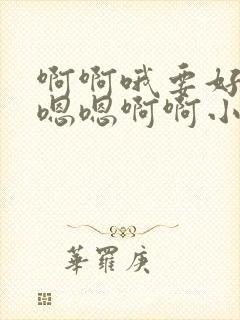 啊啊哦要好
嗯嗯啊啊小
華羅庚